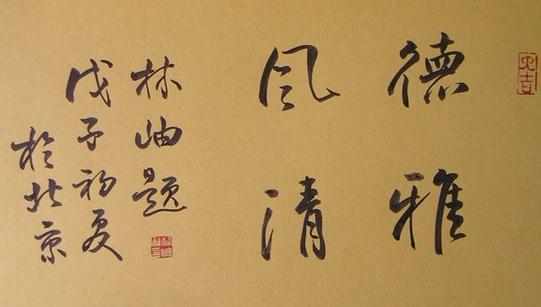 德雅
风清
林岫题
戊子初夏
於北京